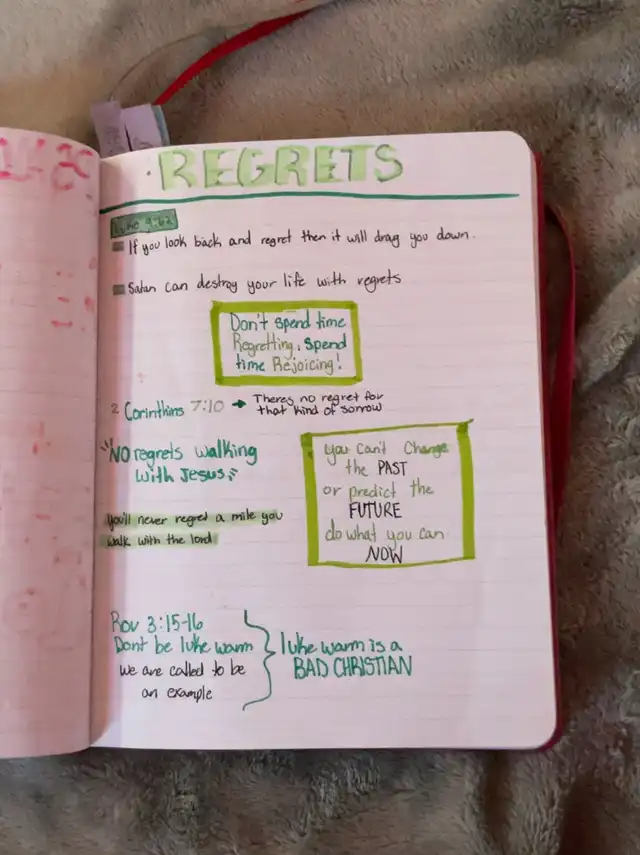 REGRETS
Luke 9:62
If you look back and regret then it will drag you down.
Satan can destroy your life with regrets
Don't spend time
Regretting, spend
time Rejoicing!
2 Corinthins 7:10 → Theres no regret for
that kind of sorrow
"NO regrets walking
with Jesus"
you can't change
the PAST
or predict the
FUTURE
do what you can
NOW
you'll never regret a mile you
walk with the lord
Rev 3:15-16
Dont be luke warm
we are called to be
an example
luke warm is a
BAD CHRISTIAN